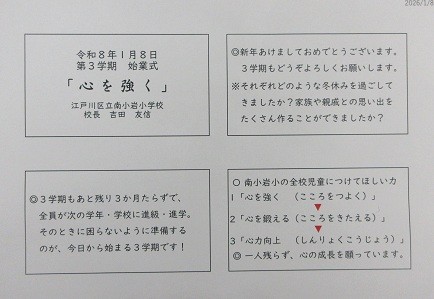 2026/1/8
令和8年1月8日
第3学期　始業式
「心を強く」
江戸川区立南小岩小学校
校長　吉田　友信
◎新年あけましておめでとうございます。
3学期もどうぞよろしくお願いします。
※それぞれどのような冬休みを過ごして
きましたか?家族や親戚との思い出を
たくさん作ることができましたか?
◎3学期もあと残り3か月たらずで、
全員が次の学年・学校に進級・進学。
そのときに困らないように準備する
のが、今日から始まる3学期です!
○ 南小岩小の全校児童につけてほしい力
1「心を強く　(こころをつよく)」
▼
2「心を鍛える(こころをきたえる)」
▼
3「心力向上　(しんりょくこうじょう)」
◎ 一人残らず、心の成長を願っています。